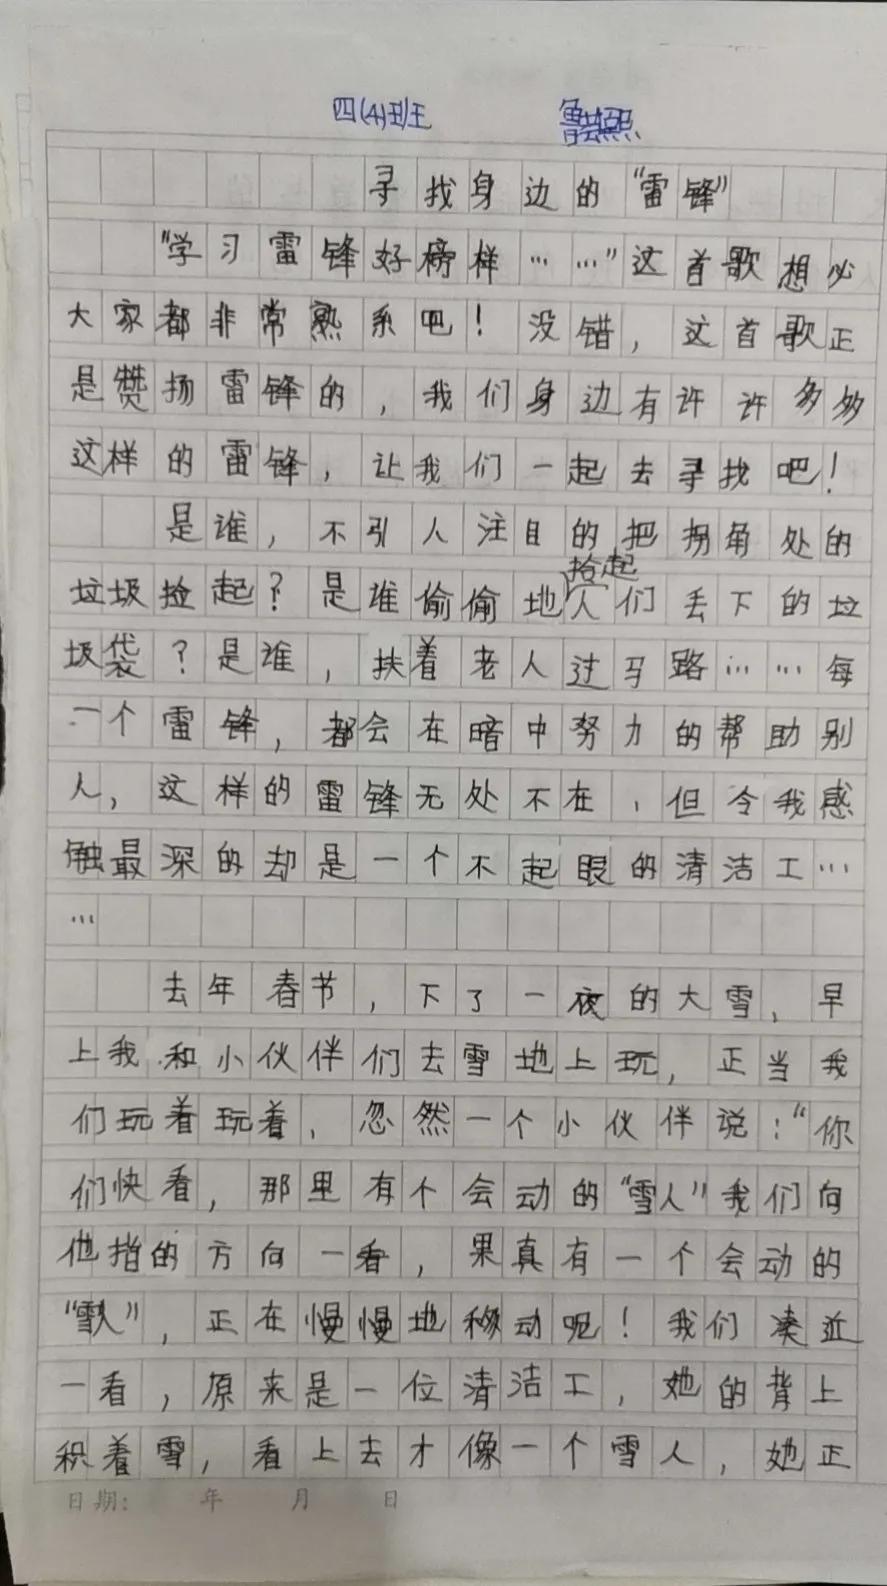 四(4)班 鲁喆熙
寻找身边的“雷锋”
“学习雷锋好榜样……”这首歌想必
大家都非常熟系吧！没错，这首歌正
是赞扬雷锋的，我们身边有许许多多
这样的雷锋，让我们一起去寻找吧！
是谁，不引人注目的把拐角处的
拾起
垃圾捡起？是谁偷偷地人们丢下的垃
圾袋？是谁，扶着老人过马路……每
一个雷锋，都会在暗中努力的帮助别
人，这样的雷锋无处不在，但令我感
触最深的却是一个不起眼的清洁工…
…
去年春节，下了一夜的大雪，早
上我和小伙伴们去雪地上玩，正当我
们玩着玩着，忽然一个小伙伴说：“你
们快看，那里有个会动的“雪人”我们向
他指的方向一看，果真有一个会动的
“雪人”，正在慢慢地移动呢！我们凑近
一看，原来是一位清洁工，她的背上
积着雪，看上去才像一个雪人，她正
日期： 年 月 日